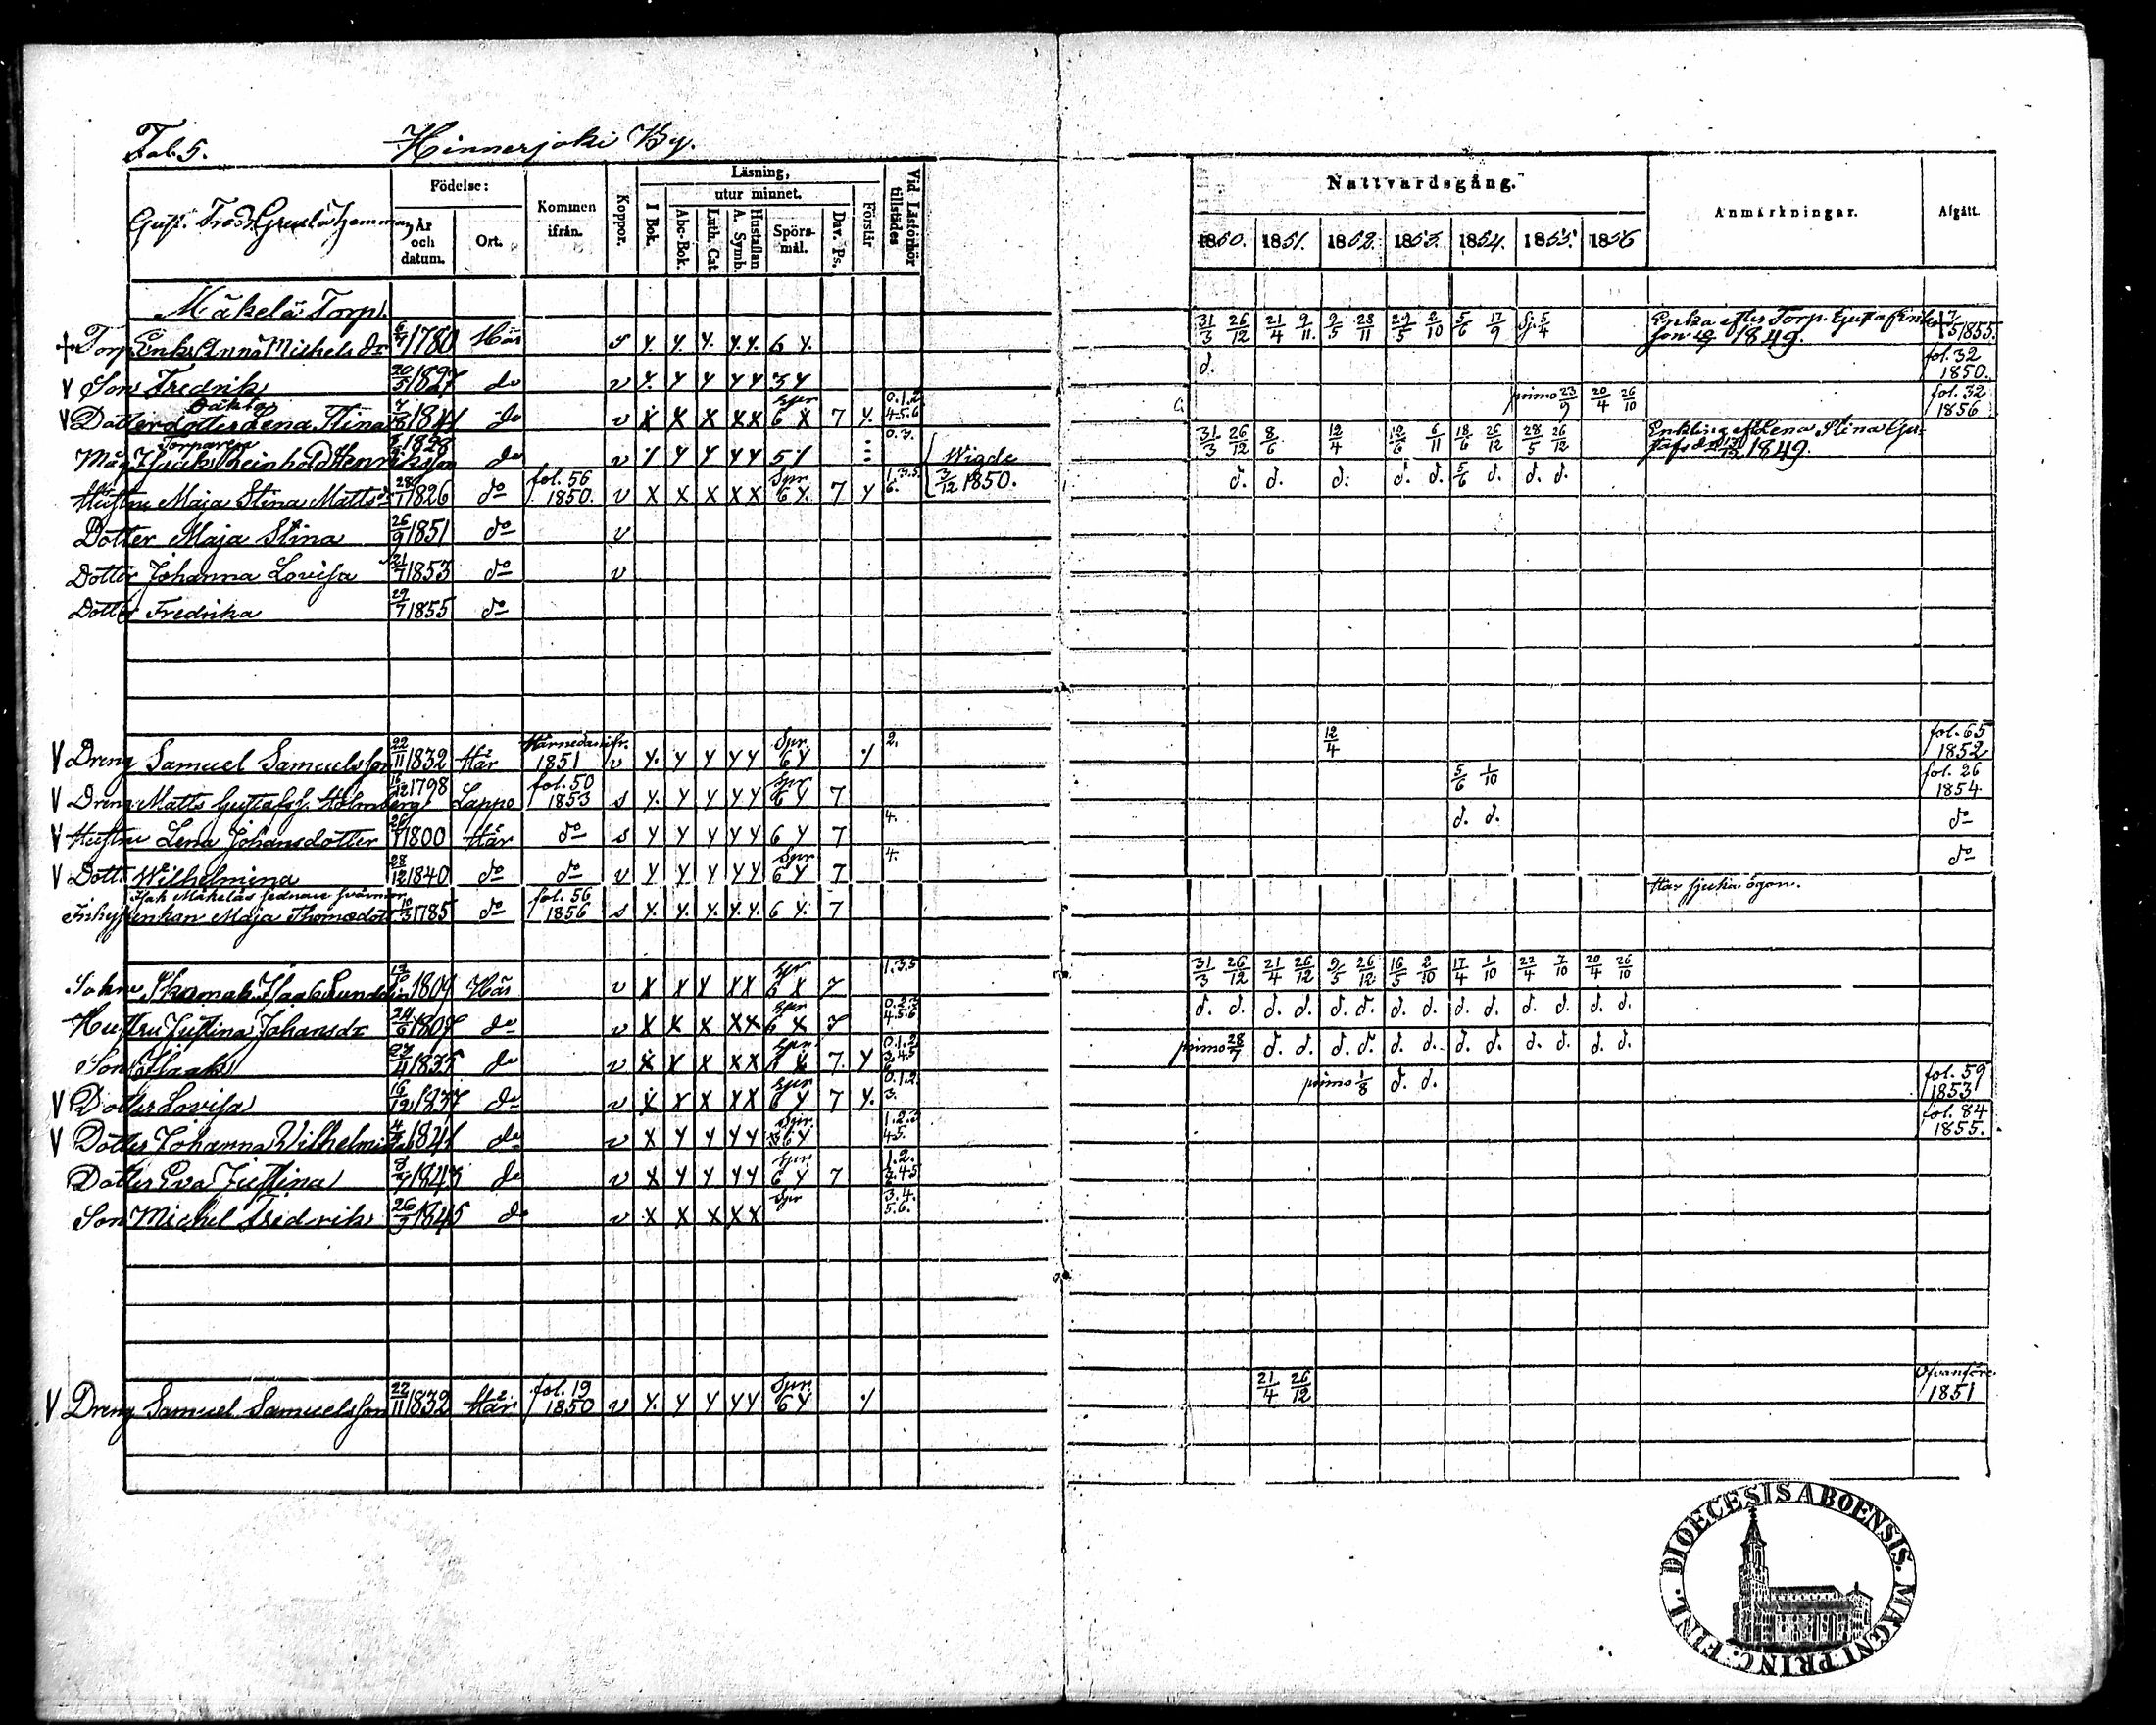 Fol. 5. Hinnerjoki By.
Födelse: Kommen ifrån. Koppor. Läsning, Förstår Vid Läsförhör tillstädes
År och datum. Ort. I Bok. utur minnet.
Abc-Bok. Luth. Cat. Hustaflan A. Symb. Spörsmål. Dav. Ps.
Nattvardsgång. Anmärkningar. Afgått.
1850. 1851. 1852. 1853. 1854. 1855. 1856
Mäkelä Torp.
+ Torp. Enk. Anna Michels dr 1780 Här s y. y. y. y. y. 6 y. 31/3 26/12 21/4 9/11. 9/5 28/11 29/5 2/10 5/6 17/9 5/4 Enka efter Torp. Gustaf 1849. + 7/5 1855.
v Son Fredrik 20/5 1827 do v y. y y y y 3 y d. fol. 32 1850.
v Dotterdotter Lena Stina 1841 do v x x x x x Spr 6 x 7 y. 0.1.2 4.5.6 primo 23/9 20/4 26/10 fol. 32 1856
Torparen
Måg Isaak Reinhold Henriksson 1828 do v y y y y y 5 y 0.3. 31/3 26/12 8/6 12/4 12/6 6/11 18/6 26/12 28/5 26/12 Enkling eft. Lena Stina Gustafsdr 1849.
Hustru Maja Stina Mattsdr 28/1 1826 do fol. 56 1850. v x x x x x Spr. 6 y. 7 y 1.3.5. 6. Wigde 3/12 1850. d. d. d. d. d. 5/6 d. d. d.
Dotter Maja Stina 26/9 1851 do v
Dotter Johanna Lovisa 21/7 1853 do v
Dotter Fredrika 29/7 1855 do
v Dreng Samuel Samuelsson 22/11 1832 Här Härnedanfr. 1851 v y. y y y y Spr. 6 y y 2. 12/4 fol. 65 1852
v Dreng Matts Gustafss. Holmberg 16/12 1798 Lappo fol. 50 1853 s y. y y y y Spr 6 y 7 5/6 1/10 fol. 26 1854
v Hustru Lena Johansdotter 26/7 1800 Här do s y y y y y 6 y 7 4. d. d. do
v Dott. Wilhelmina 28/12 1840 do do v y y y y y Spr 6 y 7 4. do
Isak Mäkeläs sednare svärmor
Inhys enkan Maja Thomasdott. 10/3 1785 do fol. 56 1856 s y. y. y. y. y. 6 y. 7 Har sjuka ögon.
Sokne Skomak. Isaak Sundelin 17/10 1809 Här v x x x x x Spr 6 x 7 1.3.5 31/3 26/12 21/4 26/12 9/5 26/12 16/5 2/10 17/4 1/10 22/4 7/10 20/4 26/10
Hustru Justina Johansdr 24/6 1807 do v x x x x x Spr 6 x 7 0.2.3 4.5.6 d. d. d. d. d. d. d. d. d. d. d. d. d. d.
Son Isaak 23/4 1835 do v x x x x x Spr. 6 x 7. y 0.1.2 3.4.5 6 primo 28/7 d. d. d. d. d. d. d. d. d. d. d. d.
v Dotter Lovisa 16/12 1837 do v x x x x x Spr 6 y 7 y. 0.1.2. 3. primo 1/8 d. d. fol. 59 1853
v Dotter Johanna Wilhelmina 1841 do v x y y y y Spr. 6 y 1.2.3 4.5. fol. 84 1855.
Dotter Eva Justina 1843 do v x y y y y Spr 6 y 7 1.2. 3.4.5
Son Michel Fredrik 26/3 1845 do v x x x x x Spr 3.4. 5.6.
v Dreng Samuel Samuelsson 22/11 1832 Här fol. 19 1850 v y. y y y y Spr. 6 y y 21/4 26/12 Ofvanföre 1851
DIOECESIS ABOENSIS. MAGNI PRINC. FINL.